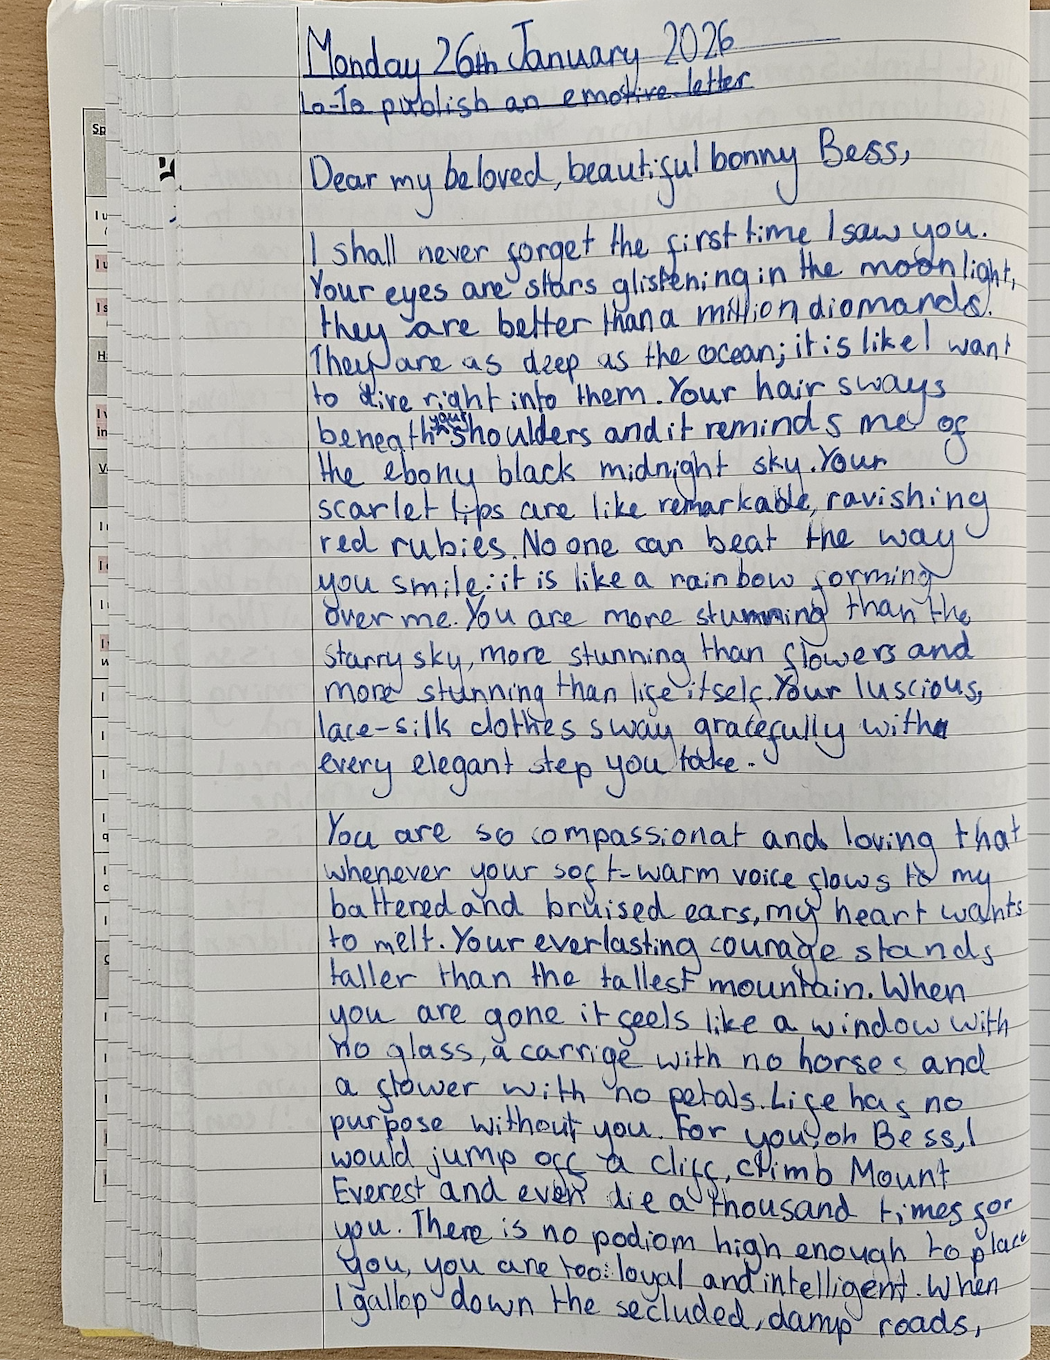 Monday 26th January 2026
Lo-To publish an emotive letter
Dear my beloved, beautiful bonny Bess,
I shall never forget the first time I saw you.
Your eyes are stars glistening in the moonlight,
they are better than a million diomands.
They are as deep as the ocean; it is like I want
to dive right into them. Your hair sways
beneath your shoulders and it reminds me of
the ebony black midnight sky. Your
scarlet lips are like remarkable, ravishing
red rubies. No one can beat the way
you smile: it is like a rainbow forming
over me. You are more stunning than the
starry sky, more stunning than flowers and
more stunning than life itself. Your luscious,
lace-silk clothes sway gracefully with
every elegant step you take.
You are so compassionat and loving that
whenever your soft-warm voice flows to my
battered and bruised ears, my heart wants
to melt. Your everlasting courage stands
taller than the tallest mountain. When
you are gone it feels like a window with
no glass, a carrige with no horses and
a flower with no petals. Life has no
purpose without you. For you, oh Bess, I
would jump off a cliff, climb Mount
Everest and even die a thousand times for
you. There is no podiom high enough to place
you, you are too loyal and intelligent. When
I gallop down the secluded, damp roads,